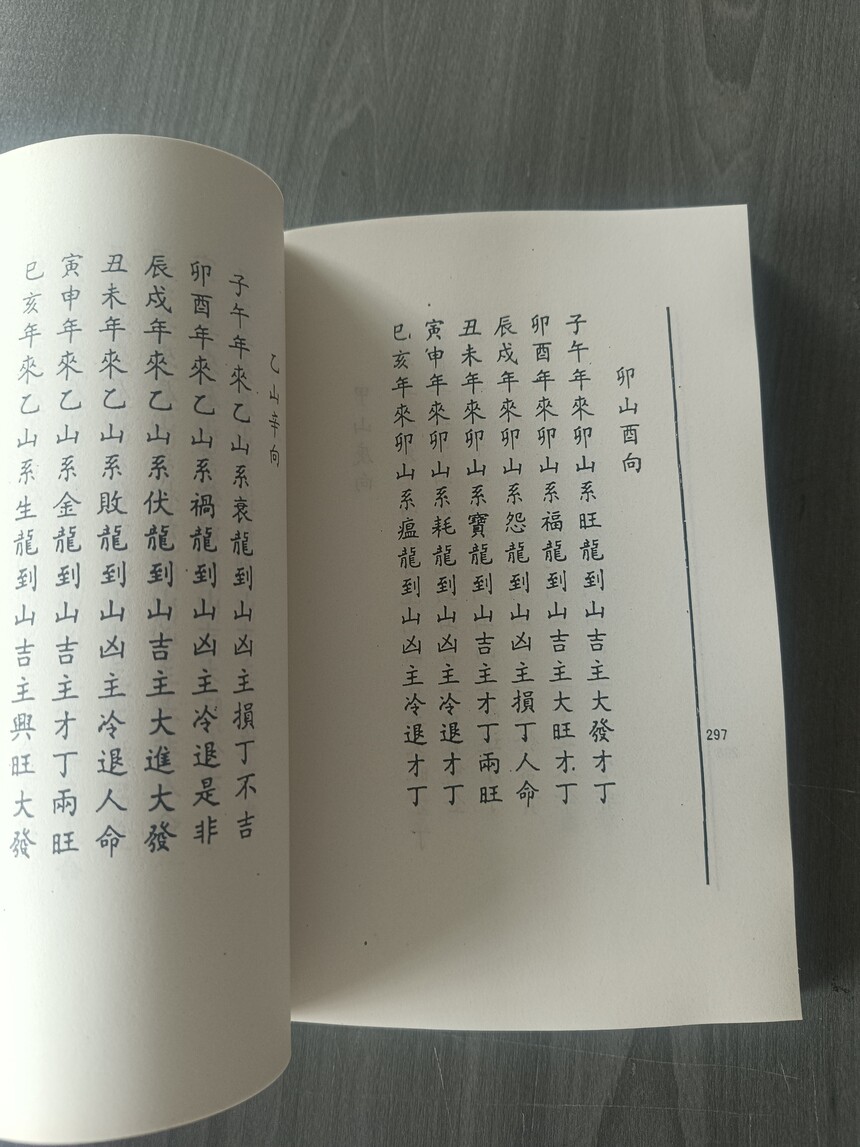 卯山酉向
子午年來卯山系旺龍到山吉主大發才丁
卯酉年來卯山系福龍到山吉主大旺才丁
辰戌年來卯山系怨龍到山凶主損丁人命
丑未年來卯山系寶龍到山吉主才丁兩旺
寅申年來卯山系耗龍到山凶主冷退才丁
巳亥年來卯山系瘟龍到山凶主冷退才丁
297
乙山辛向
子午年來乙山系衰龍到山凶主損丁不吉
卯酉年來乙山系禍龍到山凶主冷退是非
辰戌年來乙山系伏龍到山吉主大進大發
丑未年來乙山系敗龍到山凶主冷退人命
寅申年來乙山系金龍到山吉主才丁兩旺
巳亥年來乙山系生龍到山吉主興旺大發